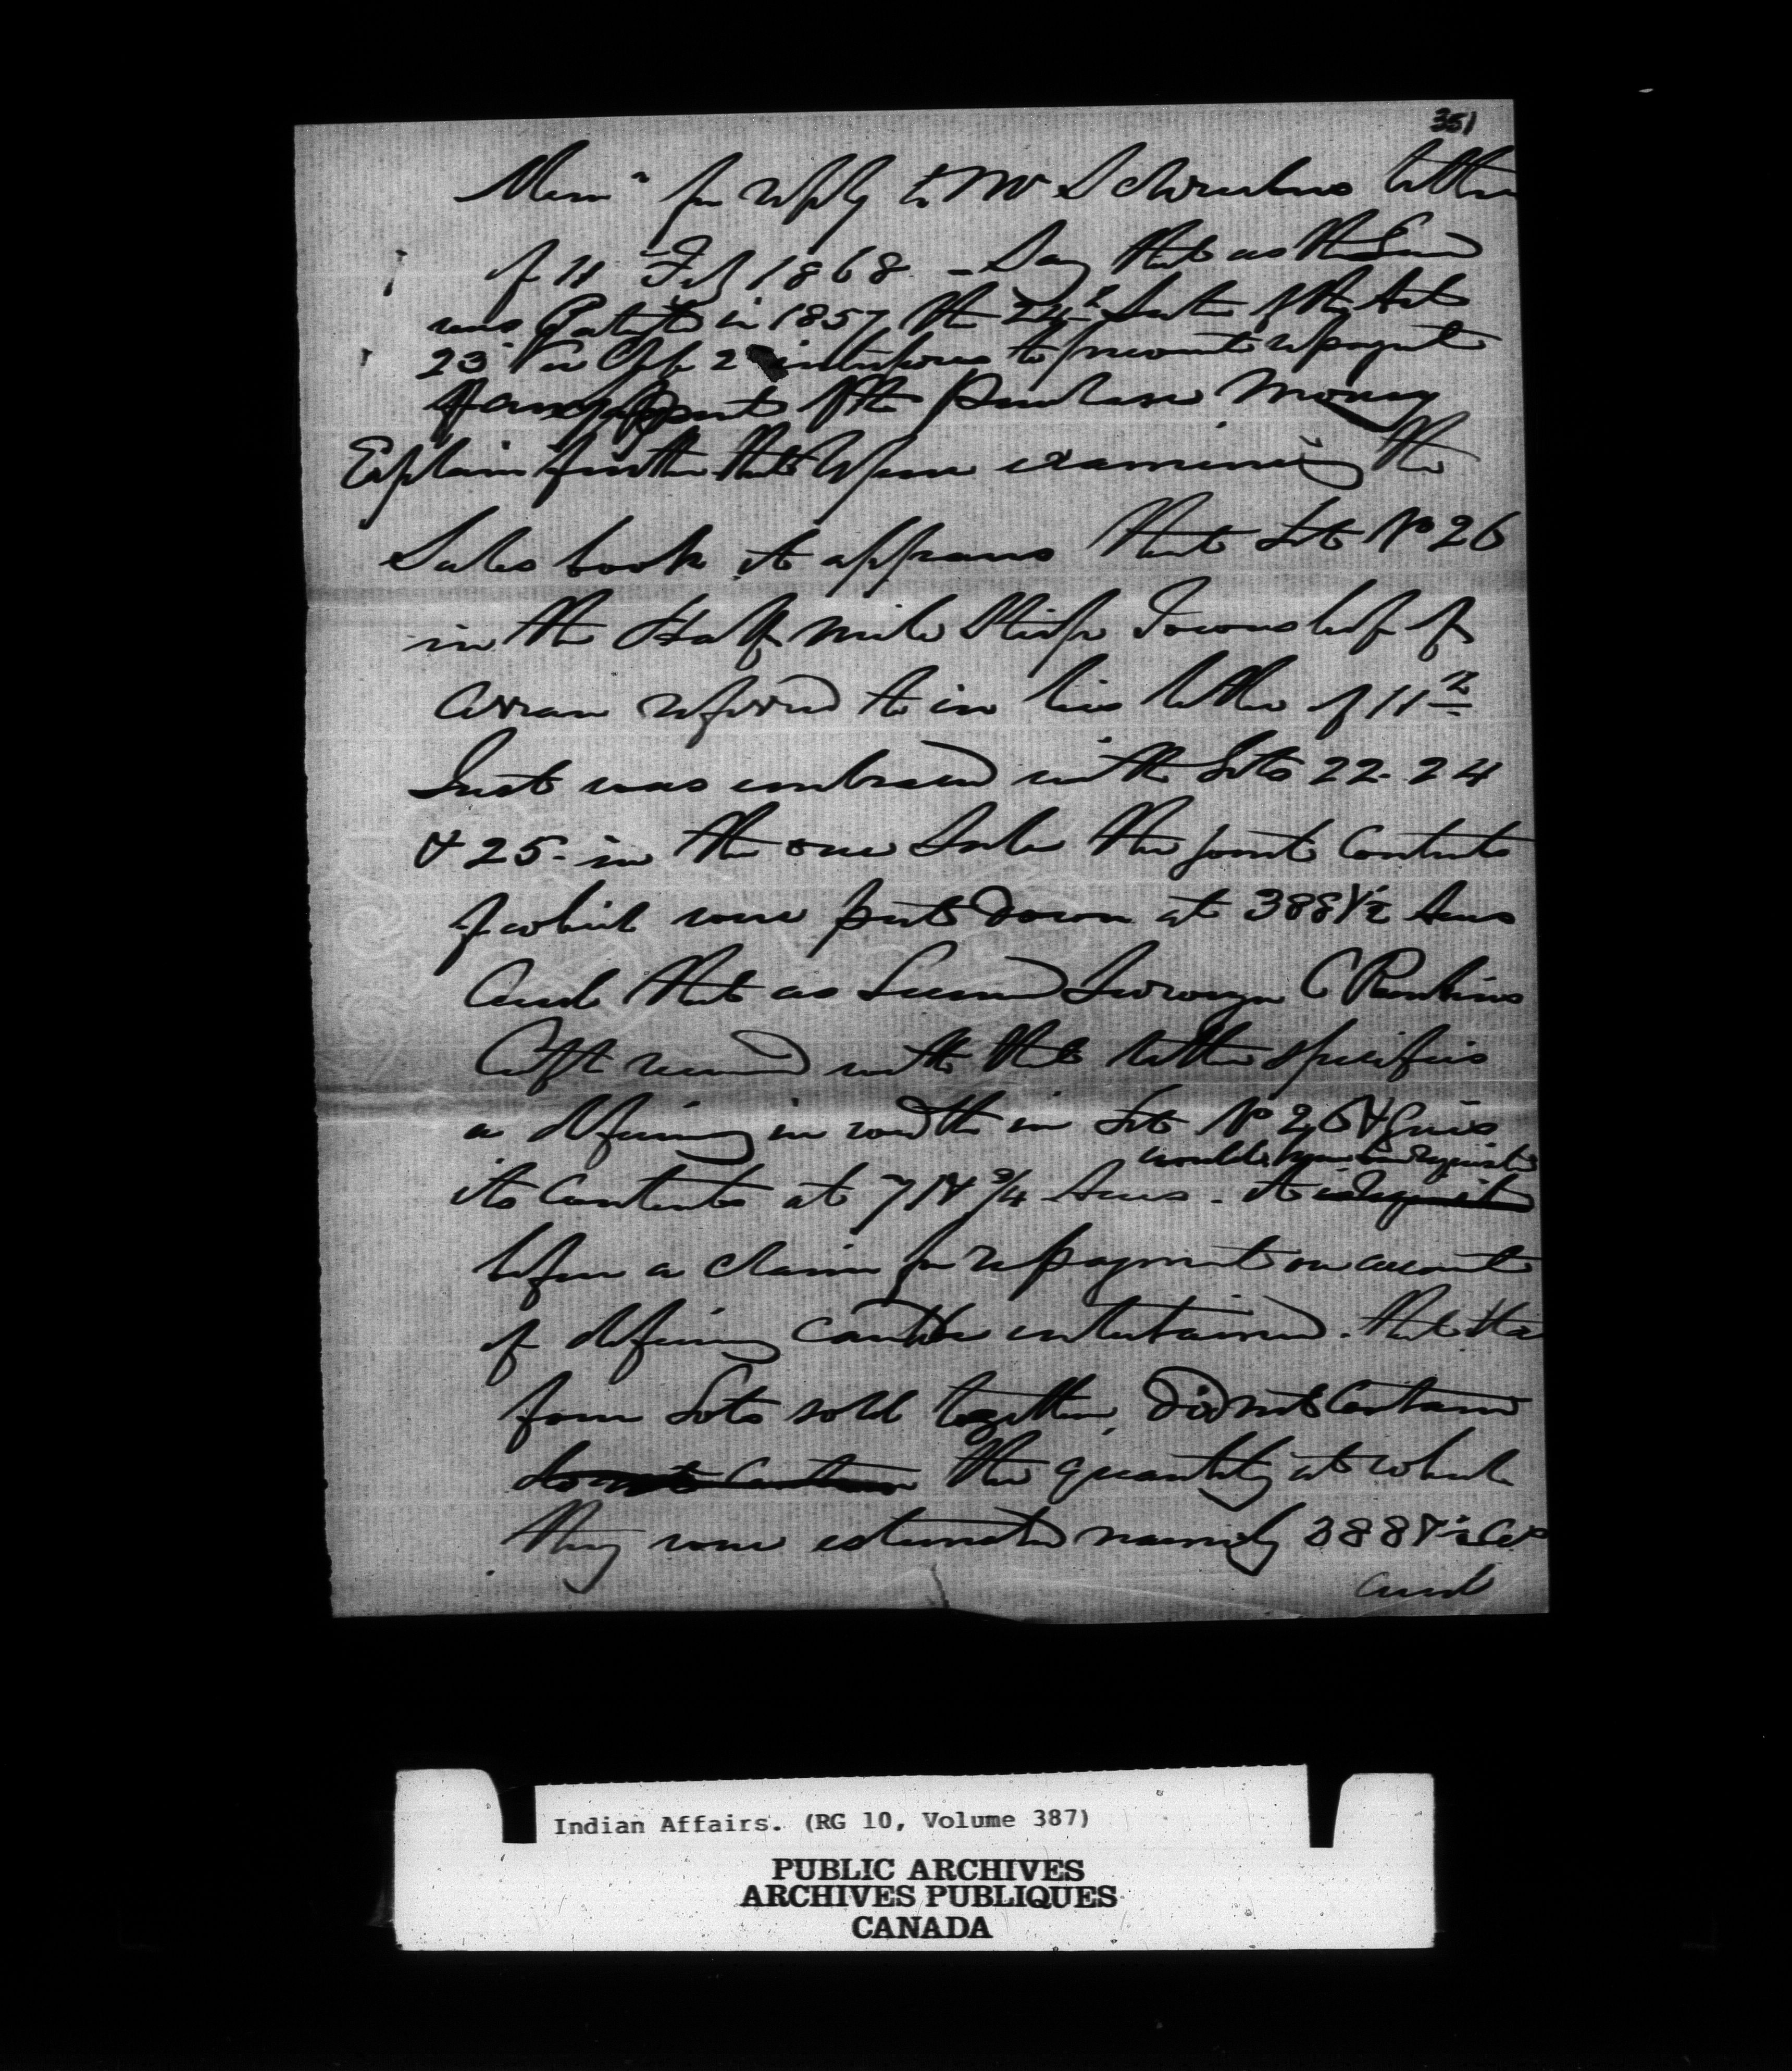 351
Memo for reply to Mr letter
of 11 Feb 1868 - Say that as the Land
was Patented in 1857 the 24th Section of the Act
23 Vic Chp 2 interferes to prevent repayment
of any part of the Purchase Money
Explain further that upon examining the
Sales book it appears that Lot No 26
in the Half mile Strip Township of
Arran referred to in his letter of 11th
Inst was embraced with Lots 22. 24
& 25. in the one Sale the joint Contents
of which were put down at 388 1/2 Acres
And that as Surveyor C Rankins
Certft received with that letter specifies
a deficiency in width in Lot No 26 & gives
would be requisite
its Contents at 71 3/4 Acres. it is requisite
before a claim for repayment on account
of deficiency can be entertained. that the
four Lots sold together, did not Contain
do not Contain the quantity at which
they were estimated namely 388 1/2 Acs
and
Indian Affairs. (RG 10, Volume 387)
PUBLIC ARCHIVES
ARCHIVES PUBLIQUES
CANADA